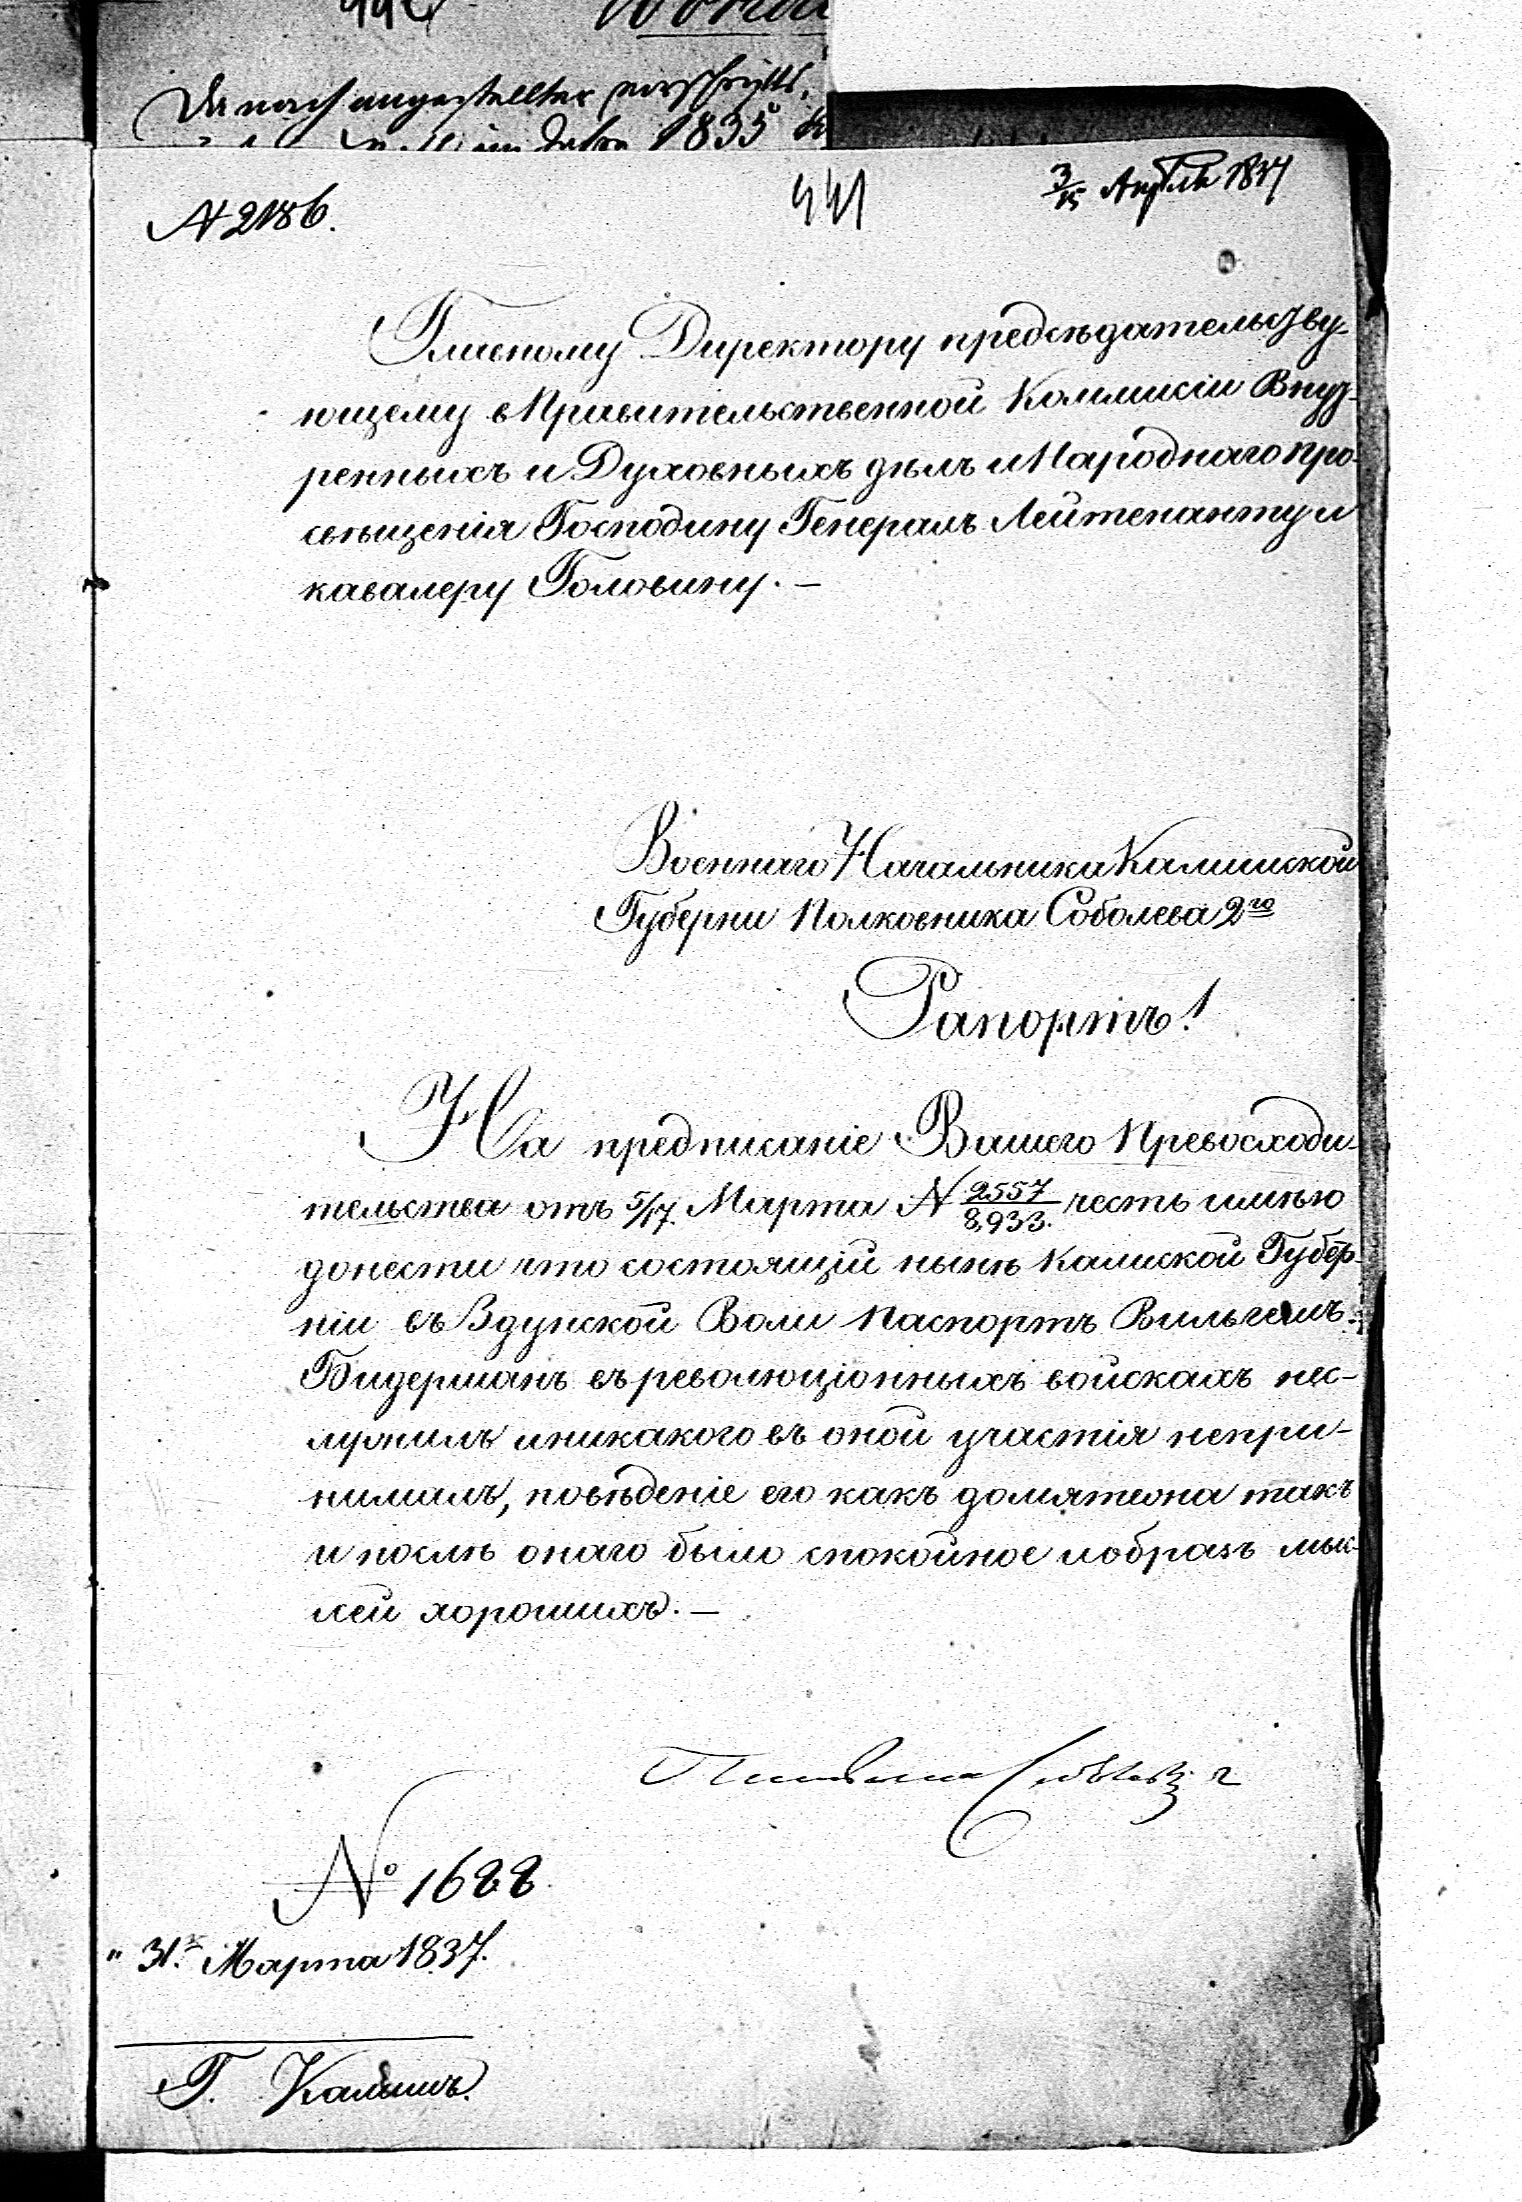 Da nach angestellter vorschrifts,
im Jahre 1835
N 2186.
441
3/15 Апреля 1837
Главному Директору предсѣдательству-
ющему в Правительственной Коммисіи Внут-
ренныхъ и Духовныхъ дѣлъ и Народнаго про-
свѣщенія Господину Генералъ Лейтенанту и
кавалеру Головину. —
Военнаго Начальника Калишской
Губерни Полковника Соболева 2го
Рапортъ!
На предписаніе Вашего Превосходи-
тельства отъ 5/17. Марта N 2557/8,933. честь имѣю
донести что состоящій нынѣ Калиской Губер-
ніи въ Здунской Воли Паспортъ Вильгелмъ
Бидерманъ въ революціонныхъ войскахъ нес-
лужилъ и никакого въ оной участія непри-
нималъ, повѣденіе его какъ до мятежа такъ
и послѣ онаго было спокойное и образъ мыс-
лей хорошихъ. —
Полковникъ Соболевъ 2
№ 1688
" 31. Марта 1837.
Г. Калишъ.